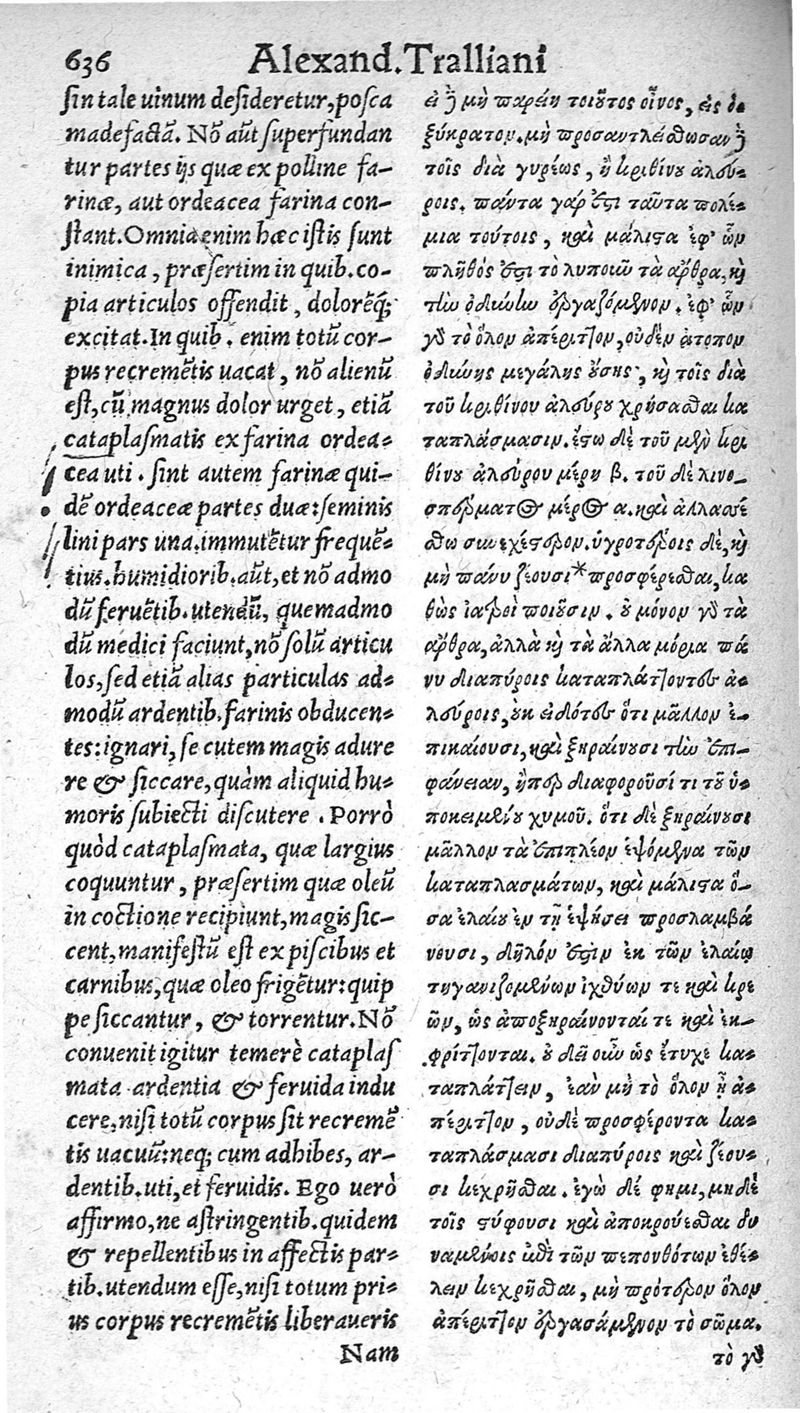 636 Alexand. Tralliani
sin tale uinum desideretur, posca
madefactā. Nō aūt superfundan
tur partes ijs quæ ex polline fa-
rinæ, aut ordeacea farina con-
stant. Omnia enim hæc istis sunt
inimica, præsertim in quib. co-
pia articulos offendit, dolorēq;
excitat. In quib. enim totū cor-
pus recremētis uacat, nō alienū
est, cū magnus dolor urget, etiā
cataplasmatis ex farina ordea-
cea uti. sint autem farinæ qui-
dē ordeaceæ partes duæ: seminis
lini pars una. immutetur frequē-
tius. humidiorib. aūt, et nō admo
dū feruētib. utendū, quemadmo
dū medici faciunt, nō solū articu
los, sed etiā alias particulas ad-
modū ardentib. farinis obducen-
tes: ignari, se cutem magis adure
re & siccare, quàm aliquid hu-
moris subiecti discutere. Porrò
quòd cataplasmata, quæ largius
coquuntur, præsertim quæ oleū
in coctione recipiunt, magis sic-
cent, manifestū est ex piscibus et
carnibus, quæ oleo frigētur: quip
pe siccantur, & torrentur. Nō
conuenit igitur temerè cataplas
mata ardentia & feruida indu
cere, nisi totū corpus sit recremē
tis uacuū: neq; cum adhibes, ar-
dentib. uti, et feruidis. Ego uerò
affirmo, ne astringentib. quidem
& repellentibus in affectis par-
tib. utendum esse, nisi totum pri-
us corpus recremētis liberaueris
Nam
εἰ ϳ μὴ παρείη τοιοῦτος οἶνος, εἰς ὀ-
ξύκρατον. μὴ προσαντλείσθωσαν ϳ
τοῖς διὰ γυρέως, ἢ κριθίνου ἀλεύ-
ροις. πάντα γάρ ἐστι ταῦτα πολέ-
μια τούτοις, καὶ μάλιστα ἐφ' ὧν
πλῆθός ἐστι τὸ λυποιῶ τὰ ἄρθρα, καὶ
τὴν ὀδύνην ἐργαζόμενον. ἐφ' ὧν
γὸ τὸ ὅλον ἀπέριττον, οὐδὲν ἄτοπον
ὀδύνης μεγάλης οὔσης, καὶ τοῖς διὰ
τοῦ κριθίνου ἀλεύρου χρήσασθαι κα
ταπλάσμασιν. ἔστω δὲ τοῦ μὲν κρι
θίνου ἀλεύρου μέρη β. τοῦ δὲ λινο-
σπέρματος μέρος α. καὶ ἀλλασσέ
σθω συνεχέστερον. ὑγροτέροις δὲ, καὶ
μὴ πάνυ ζέουσι* προσφέρεσθαι, κα
θὼς ἰατροὶ ποιοῦσιν. οὐ μόνον γὸ τὰ
ἄρθρα, ἀλλὰ καὶ τὰ ἄλλα μόρια πά
νυ διαπύροις καταπλάττοντες ἀ-
λεύροις, οὐκ εἰδότες ὅτι μᾶλλον ἐ-
πικαίουσι, καὶ ξηραίνουσι τὴν ἐπι-
φάνειαν, ἤπερ διαφοροῦσί τι τοῦ ὑ-
ποκειμένου χυμοῦ. ὅτι δὲ ξηραίνουσι
μᾶλλον τὰ ἐπιπλέον ἑψόμενα τῶν
καταπλασμάτων, καὶ μάλιστα ὅ-
σα ἐλαίου ἐν τῇ ἑψήσει προσλαμβά
νουσι, δῆλόν ἐστιν ἐκ τῶν ἐλαίῳ
τηγανιζομένων ἰχθύων τε καὶ κρε
ῶν, ὡς ἀποξηραίνονταί τε καὶ ἐκ-
φρίττονται. οὐ δεῖ οὖν ὡς ἔτυχε κα-
ταπλάττειν, ἐὰν μὴ τὸ ὅλον ᾖ ἀ-
πέριττον, οὐδὲ προσφέροντα κα-
ταπλάσμασι διαπύροις καὶ ζέου-
σι κεχρῆσθαι. ἐγὼ δέ φημι, μηδὲ
τοῖς στύφουσι καὶ ἀποκρούεσθαι δυ
ναμένοις ἐπὶ τῶν πεπονθότων ἐθέ-
λειν κεχρῆσθαι, μὴ πρότερον ὅλον
ἀπέριττον ἐργασάμενον τὸ σῶμα.
τὸ γὸ